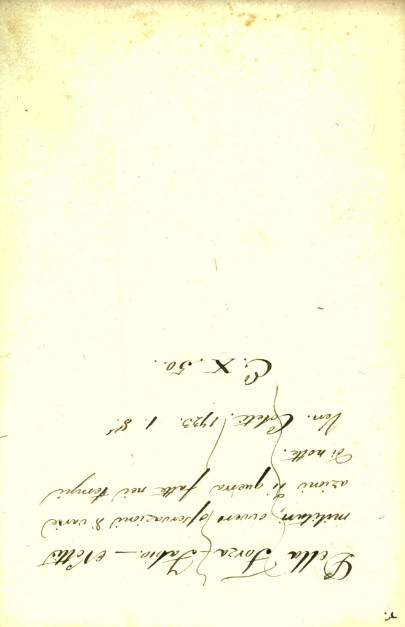 Della Forza Fabio — Notti
militari, ovvero osservazioni di varie
azioni di guerra fatte nei tempi
di notte.
Ven. Coleti. 1723. 1. 8.°
C. X. 50.